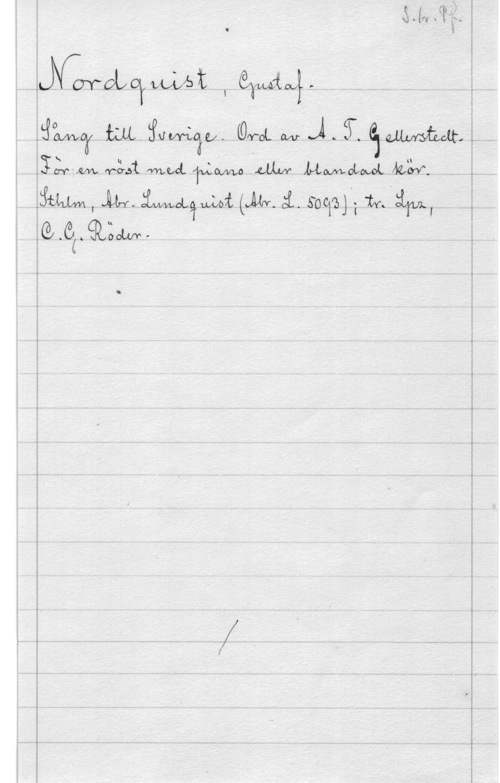 S. br. Pf.
Nordquist, Gustaf.
Sång till Sverige. Ord av A. T. Gellerstedt.
För en röst med piano eller blandad kör.
Sthlm, Abr. Lundquist (Abr. L. 5093); tr. Lpz,
C. G. Röder.
/